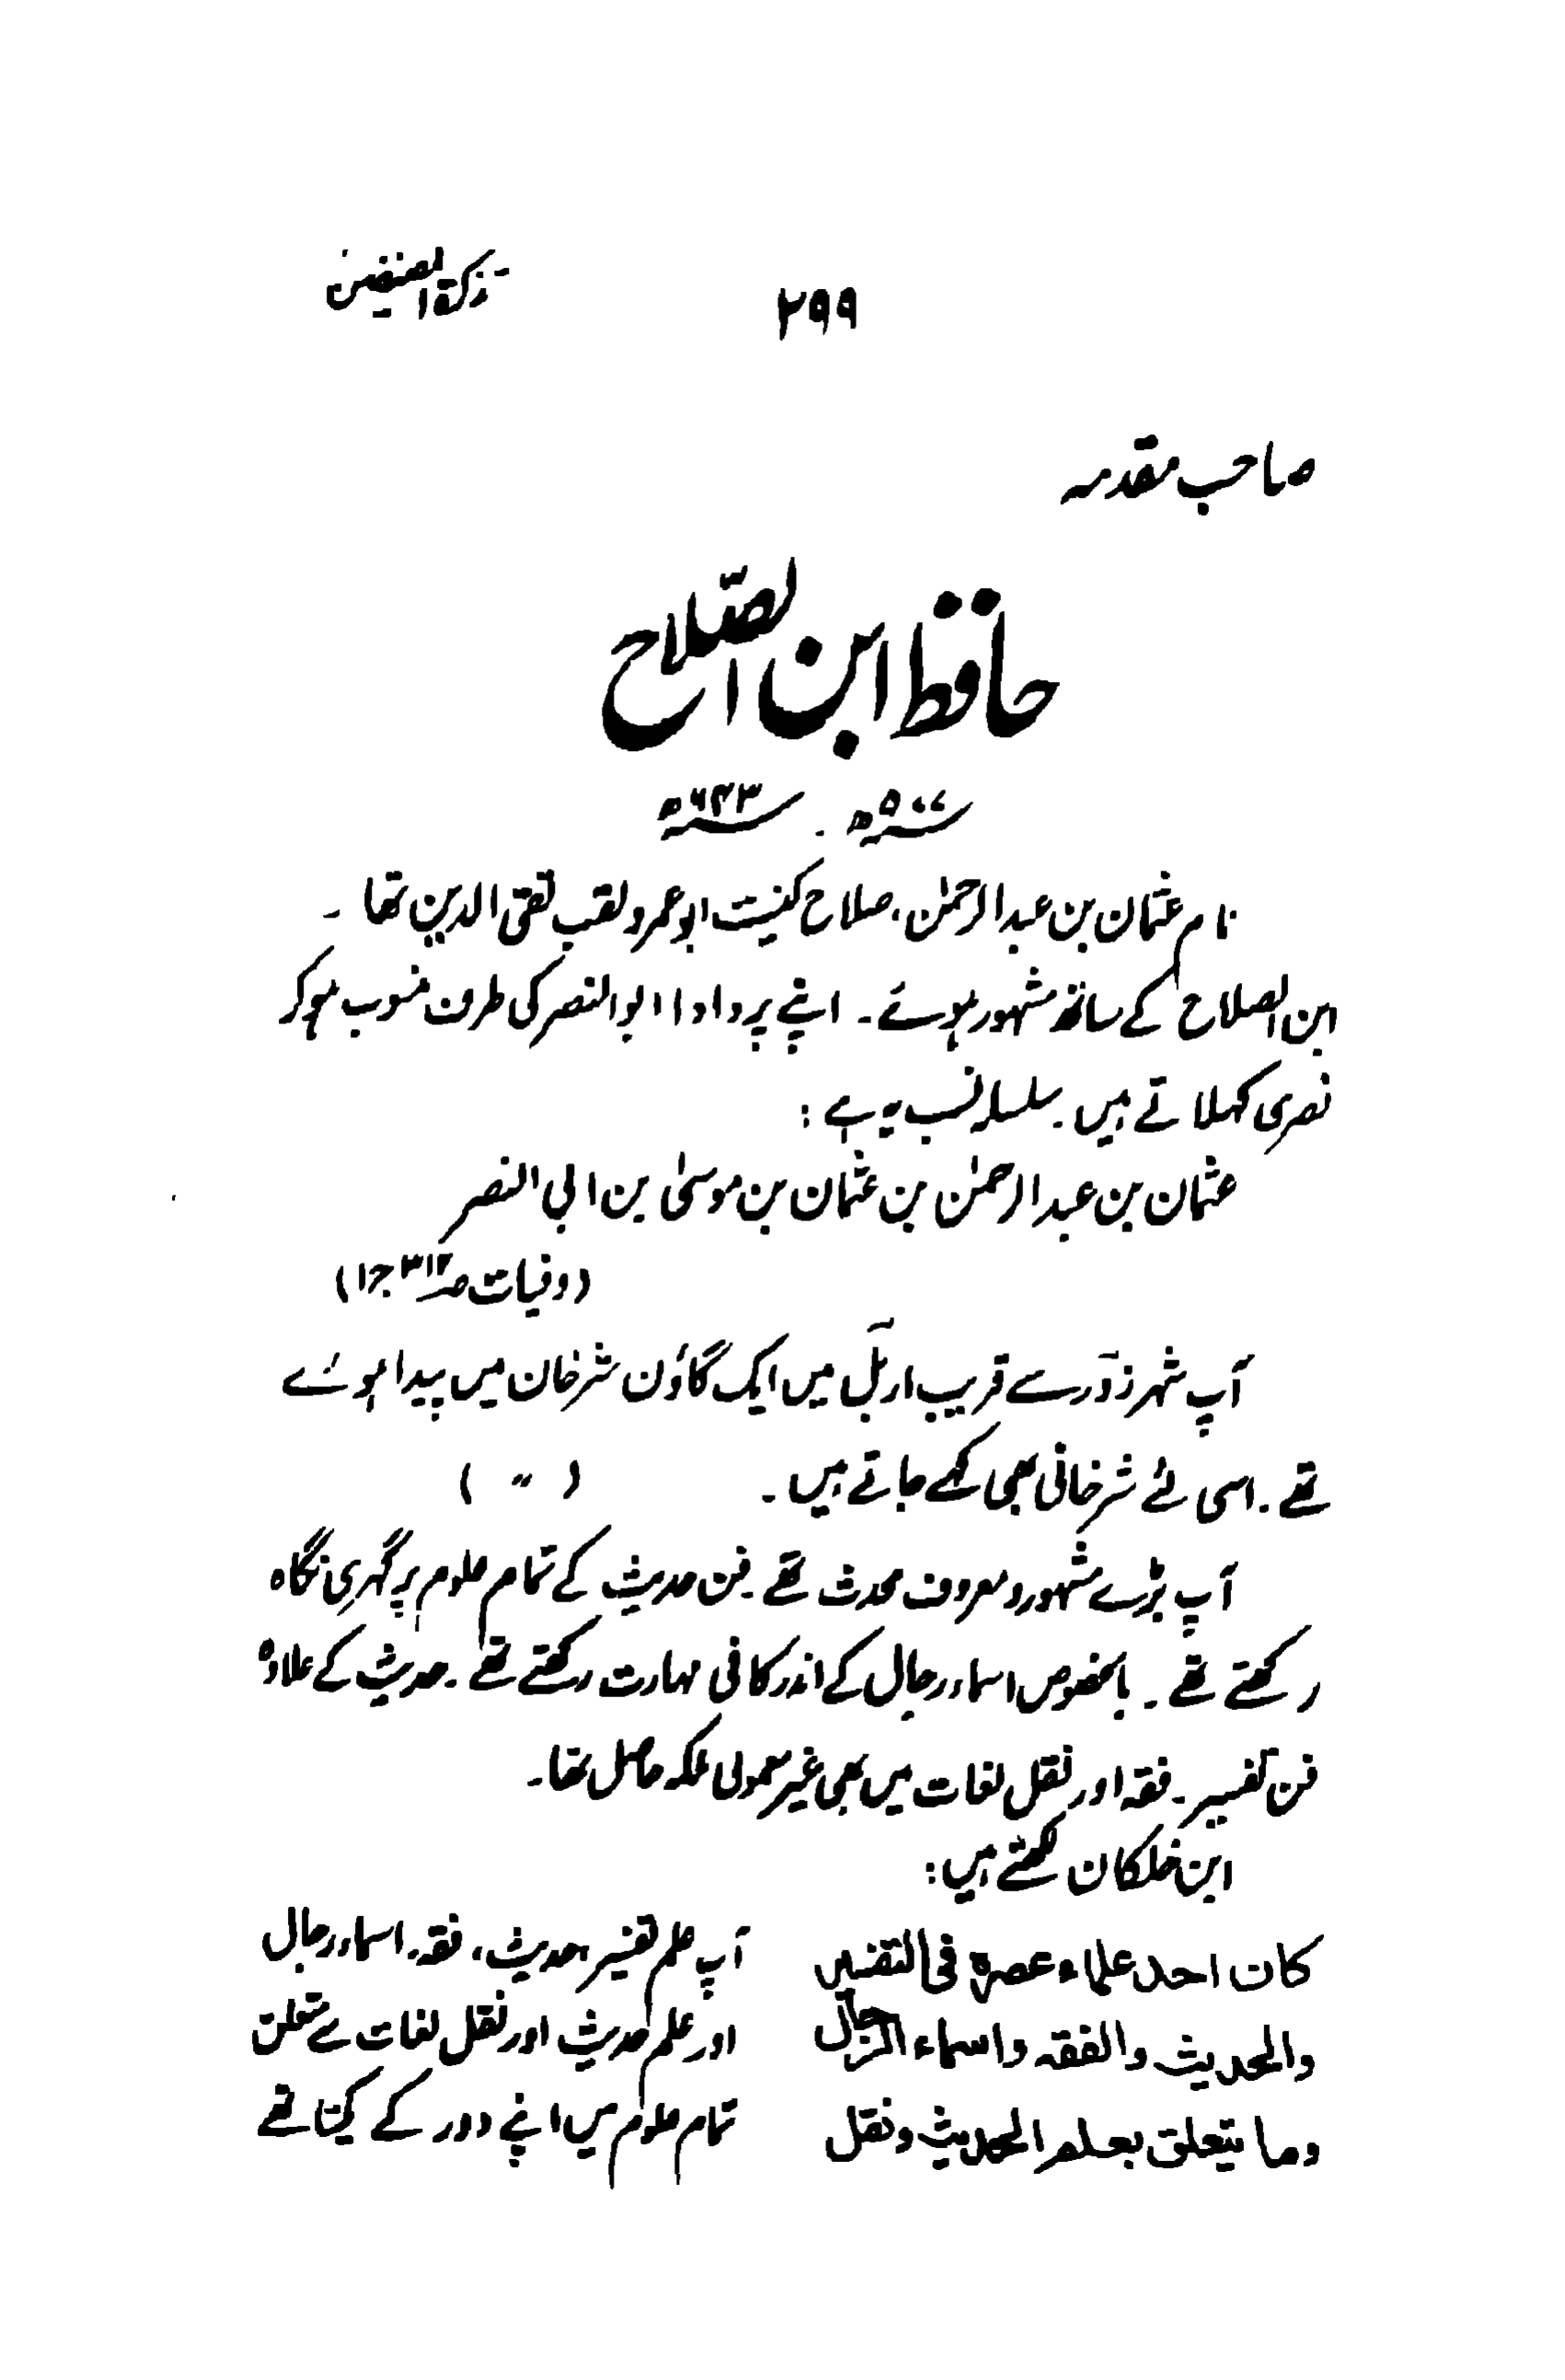 تذکرۃ المصنفین
۲۹۹
صاحب مقدمہ
حافظ ابن الصّلاح
۵۷۷ھ ۔ ۶۴۳ھ
نام عثمان بن عبدالرحمٰن، صلاح کنیت ابوعمرو لقب تقی الدین تھا ۔
ابن الصلاح کے ساتھ مشہور ہوئے ۔ اپنے پردادا ابوالنصر کی طرف منسوب ہوکر
نصری کہلاتے ہیں ۔ سلسلہ نسب یہ ہے :
عثمان بن عبدالرحمٰن بن عثمان بن موسیٰ بن ابی النصر
(وفیات صـ۳۱۲ ج۱)
آپ شہرزور سے قریب اربل میں ایک گاؤں شرخان میں پیدا ہوئے
تھے ۔ اسی لئے شرخانی بھی کہے جاتے ہیں ۔ ( " )
آپ بڑے مشہور و معروف محدث تھے ۔ فن حدیث کے تمام علوم پر گہری نگاہ
رکھتے تھے ۔ بالخصوص اسماء رجال کے اندر کافی مہارت رکھتے تھے ۔ حدیث کے علاوہ
فن تفسیر ۔ فقہ اور نقل لغات میں بھی غیر معمولی ملکہ حاصل تھا ۔
ابن خلکان لکھتے ہیں :
کان احد علماء عصرہ فی التفسیر
والحدیث والفقہ واسماء الرجال
وما یتعلق بعلم الحدیث ونقل
آپ علم تفسیر، حدیث، فقہ، اسماء رجال
اور علم حدیث اور نقل لغات سے متعلق
تمام علوم میں اپنے دور کے یکتا تھے